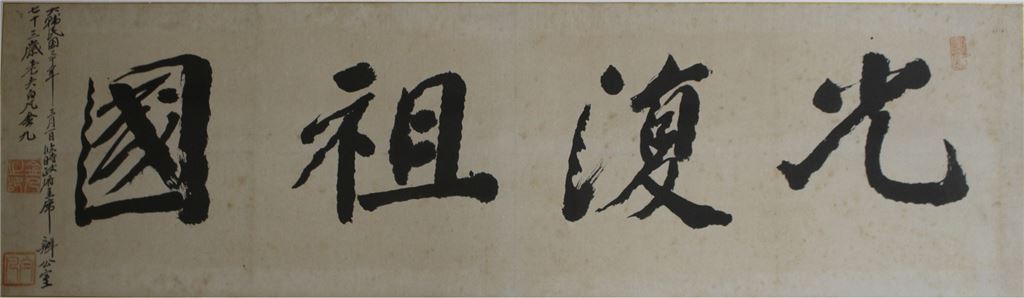 光復祖國
大韓民國三十年 三月一日臨時政府主席 辦公室
七十三歲老夫白凡金九